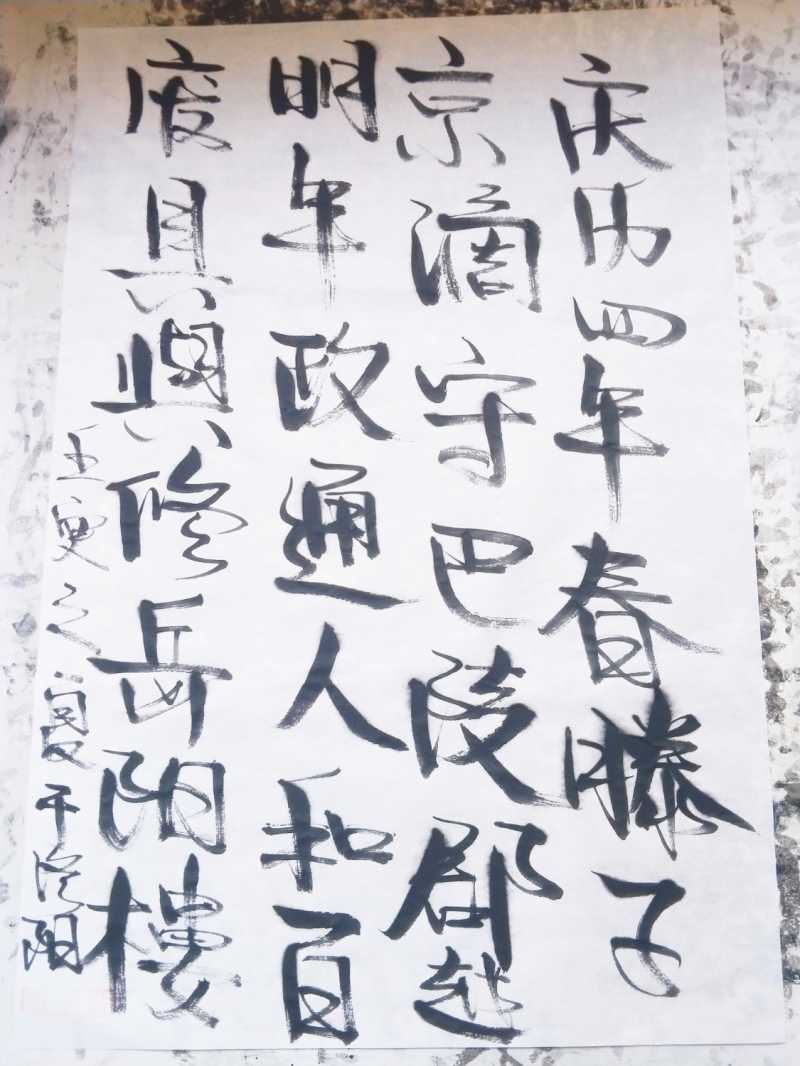 庆历四年春滕子
京滴守巴陵郡越
明年政通人和百
废具興修岳阳樓
壬寅之夏于洛阳